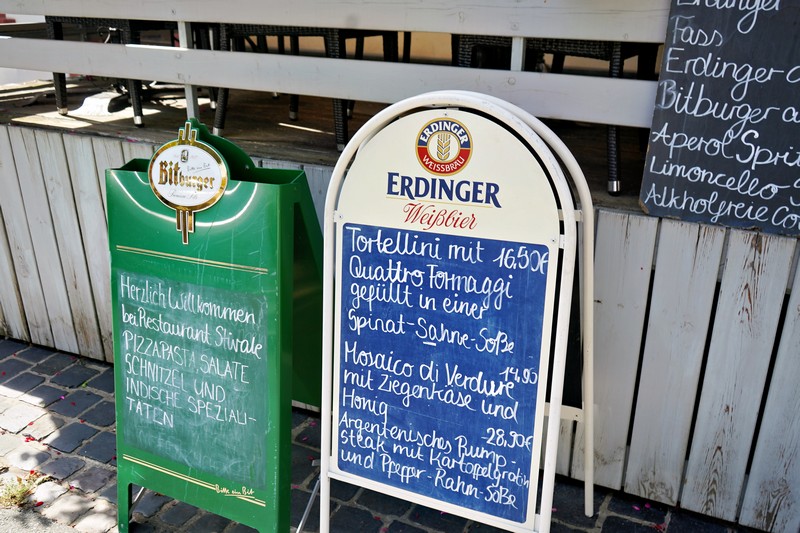 Bitburger
Herzlich Willkommen
bei Restaurant Stivale
PIZZA PASTA SALATE
SCHNITZEL UND
INDISCHE SPEZIALI-
TÄTEN
Bitte ein Bit
ERDINGER
WEISSBRÄU
ERDINGER
Weißbier
Tortellini mit 16.50€
Quattro Formaggi
gefüllt in einer
Spinat-Sahne-Soße
Mosaico di Verdure 14.90
mit Ziegenkäse und
Honig
-28,90€
Argentenisches Rump-
steak mit Kartoffelgratin
und Pfeffer-Rahm-Soße
Erdinger
Fass
Erdinger
Bitburger
Aperol Spritz
Limoncello
Alkholfreie